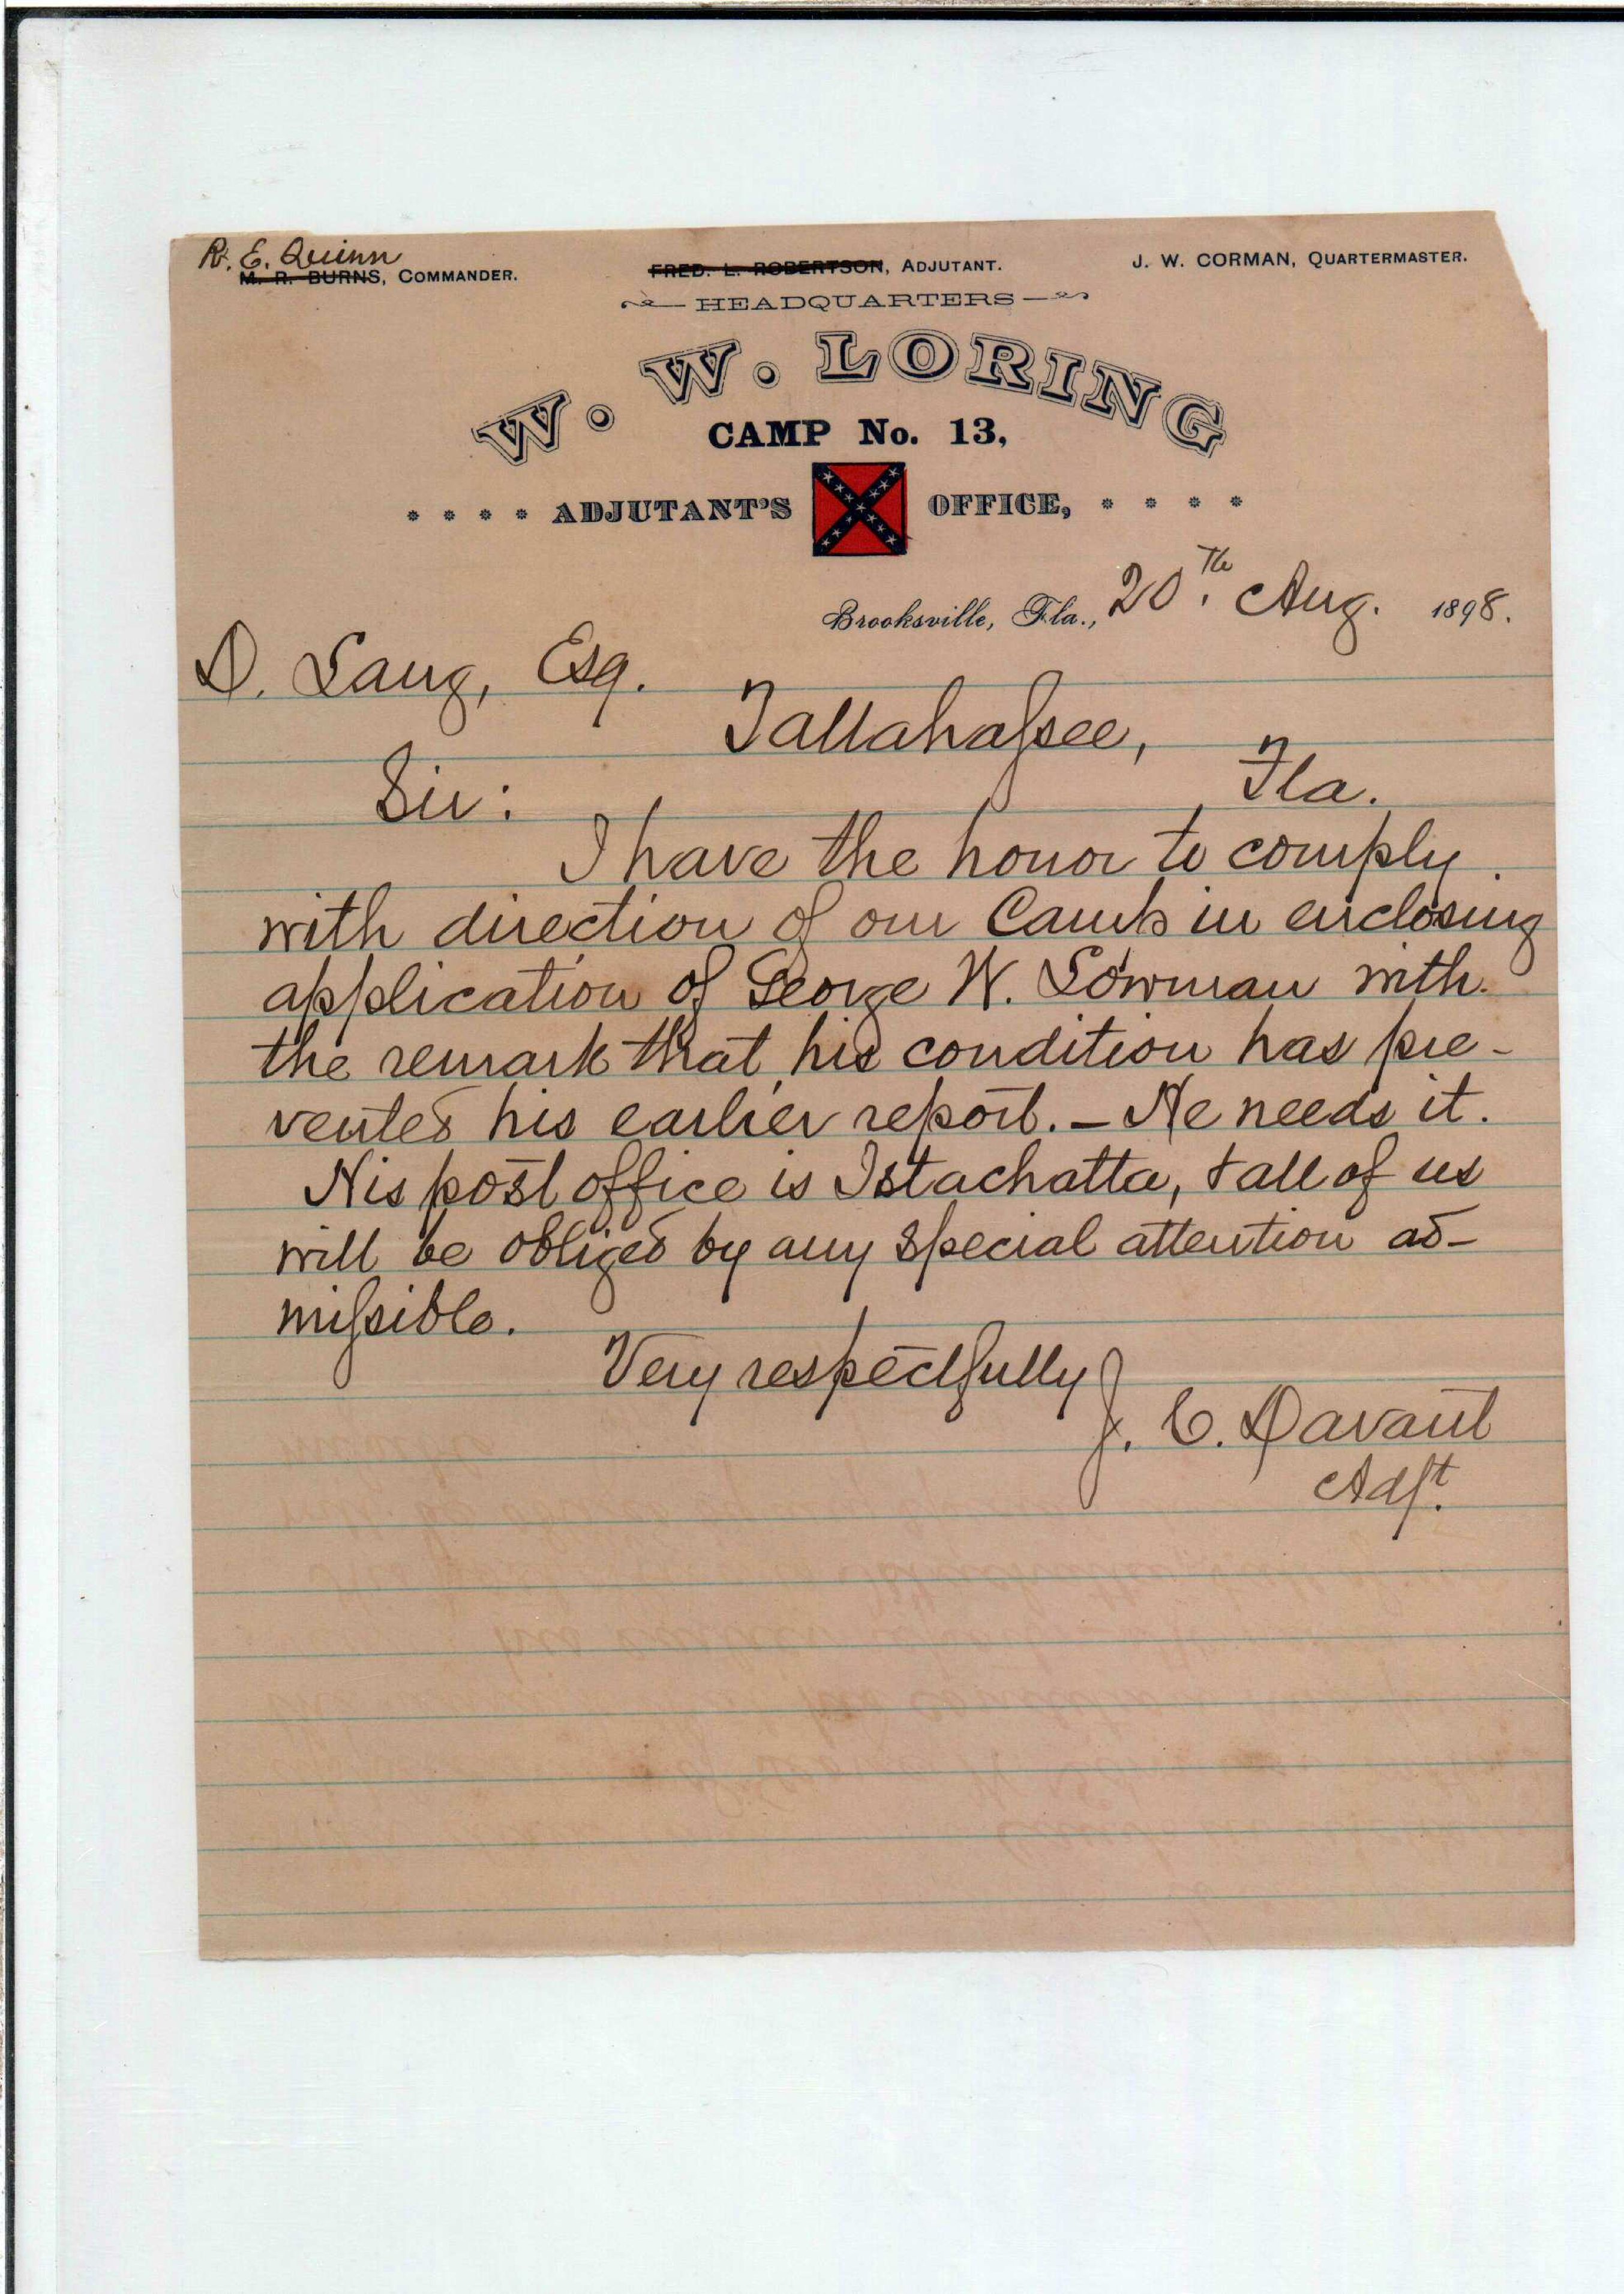 R. E. Quinn
M. R. BURNS, COMMANDER.
FRED. L. ROBERTSON, ADJUTANT.
J. W. CORMAN, QUARTERMASTER.
HEADQUARTERS
W. W. LORING
CAMP No. 13,
ADJUTANT'S OFFICE,
Brooksville, Fla., 20th. Aug. 1898.
D. Lang, Esq.
Tallahassee,
Fla.
Sir:
I have the honor to comply
with direction of our Camp in enclosing
application of George W. Lowman with
the remark that his condition has pre-
vented his earlier report. — He needs it.
His post office is Istachatta, & all of us
will be obliged by any special attention ad-
missible.
Very respectfully
J. C. Davant
Adjt.